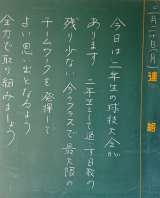 二月二十七日(月)
連絡
今日は二年生の球技大会が
あります。二年生として過ごす日数の
残り少ない今、クラスで最大限の
チームワークを発揮して
よい思い出となるよう
全力で取り組みましょう